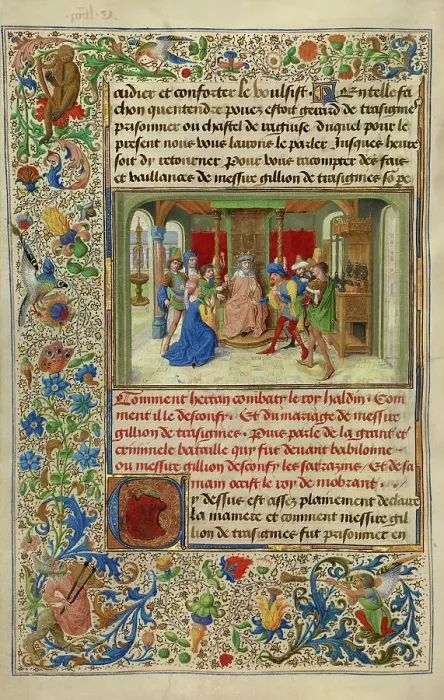 aidier et conforter le voulsist. En telle fa
chon quentendre pouez estoit gerard de trasignies
prisonnier ou chastel de raguse duquel pour le
present nous vous lairons le parler Jusques heure
soit dy retourner Pour vous racompter des fais
et vaillances de messire gillion de trasignies so pe
Comment hertan combaty le roy haldin. Com
ment il le desconfy. Et du mariage de messire
gillion de trasignies. Puis parle de la grant et
criminele bataille quy fut deuant babilonne
ou messire gillion desconfy les sarrazins. Et de sa
main occist le roy de mobrant.
Cy dessus est assez plainement declaire
la maniere et comment messire gil
lion de trasignies fut prisonnier en